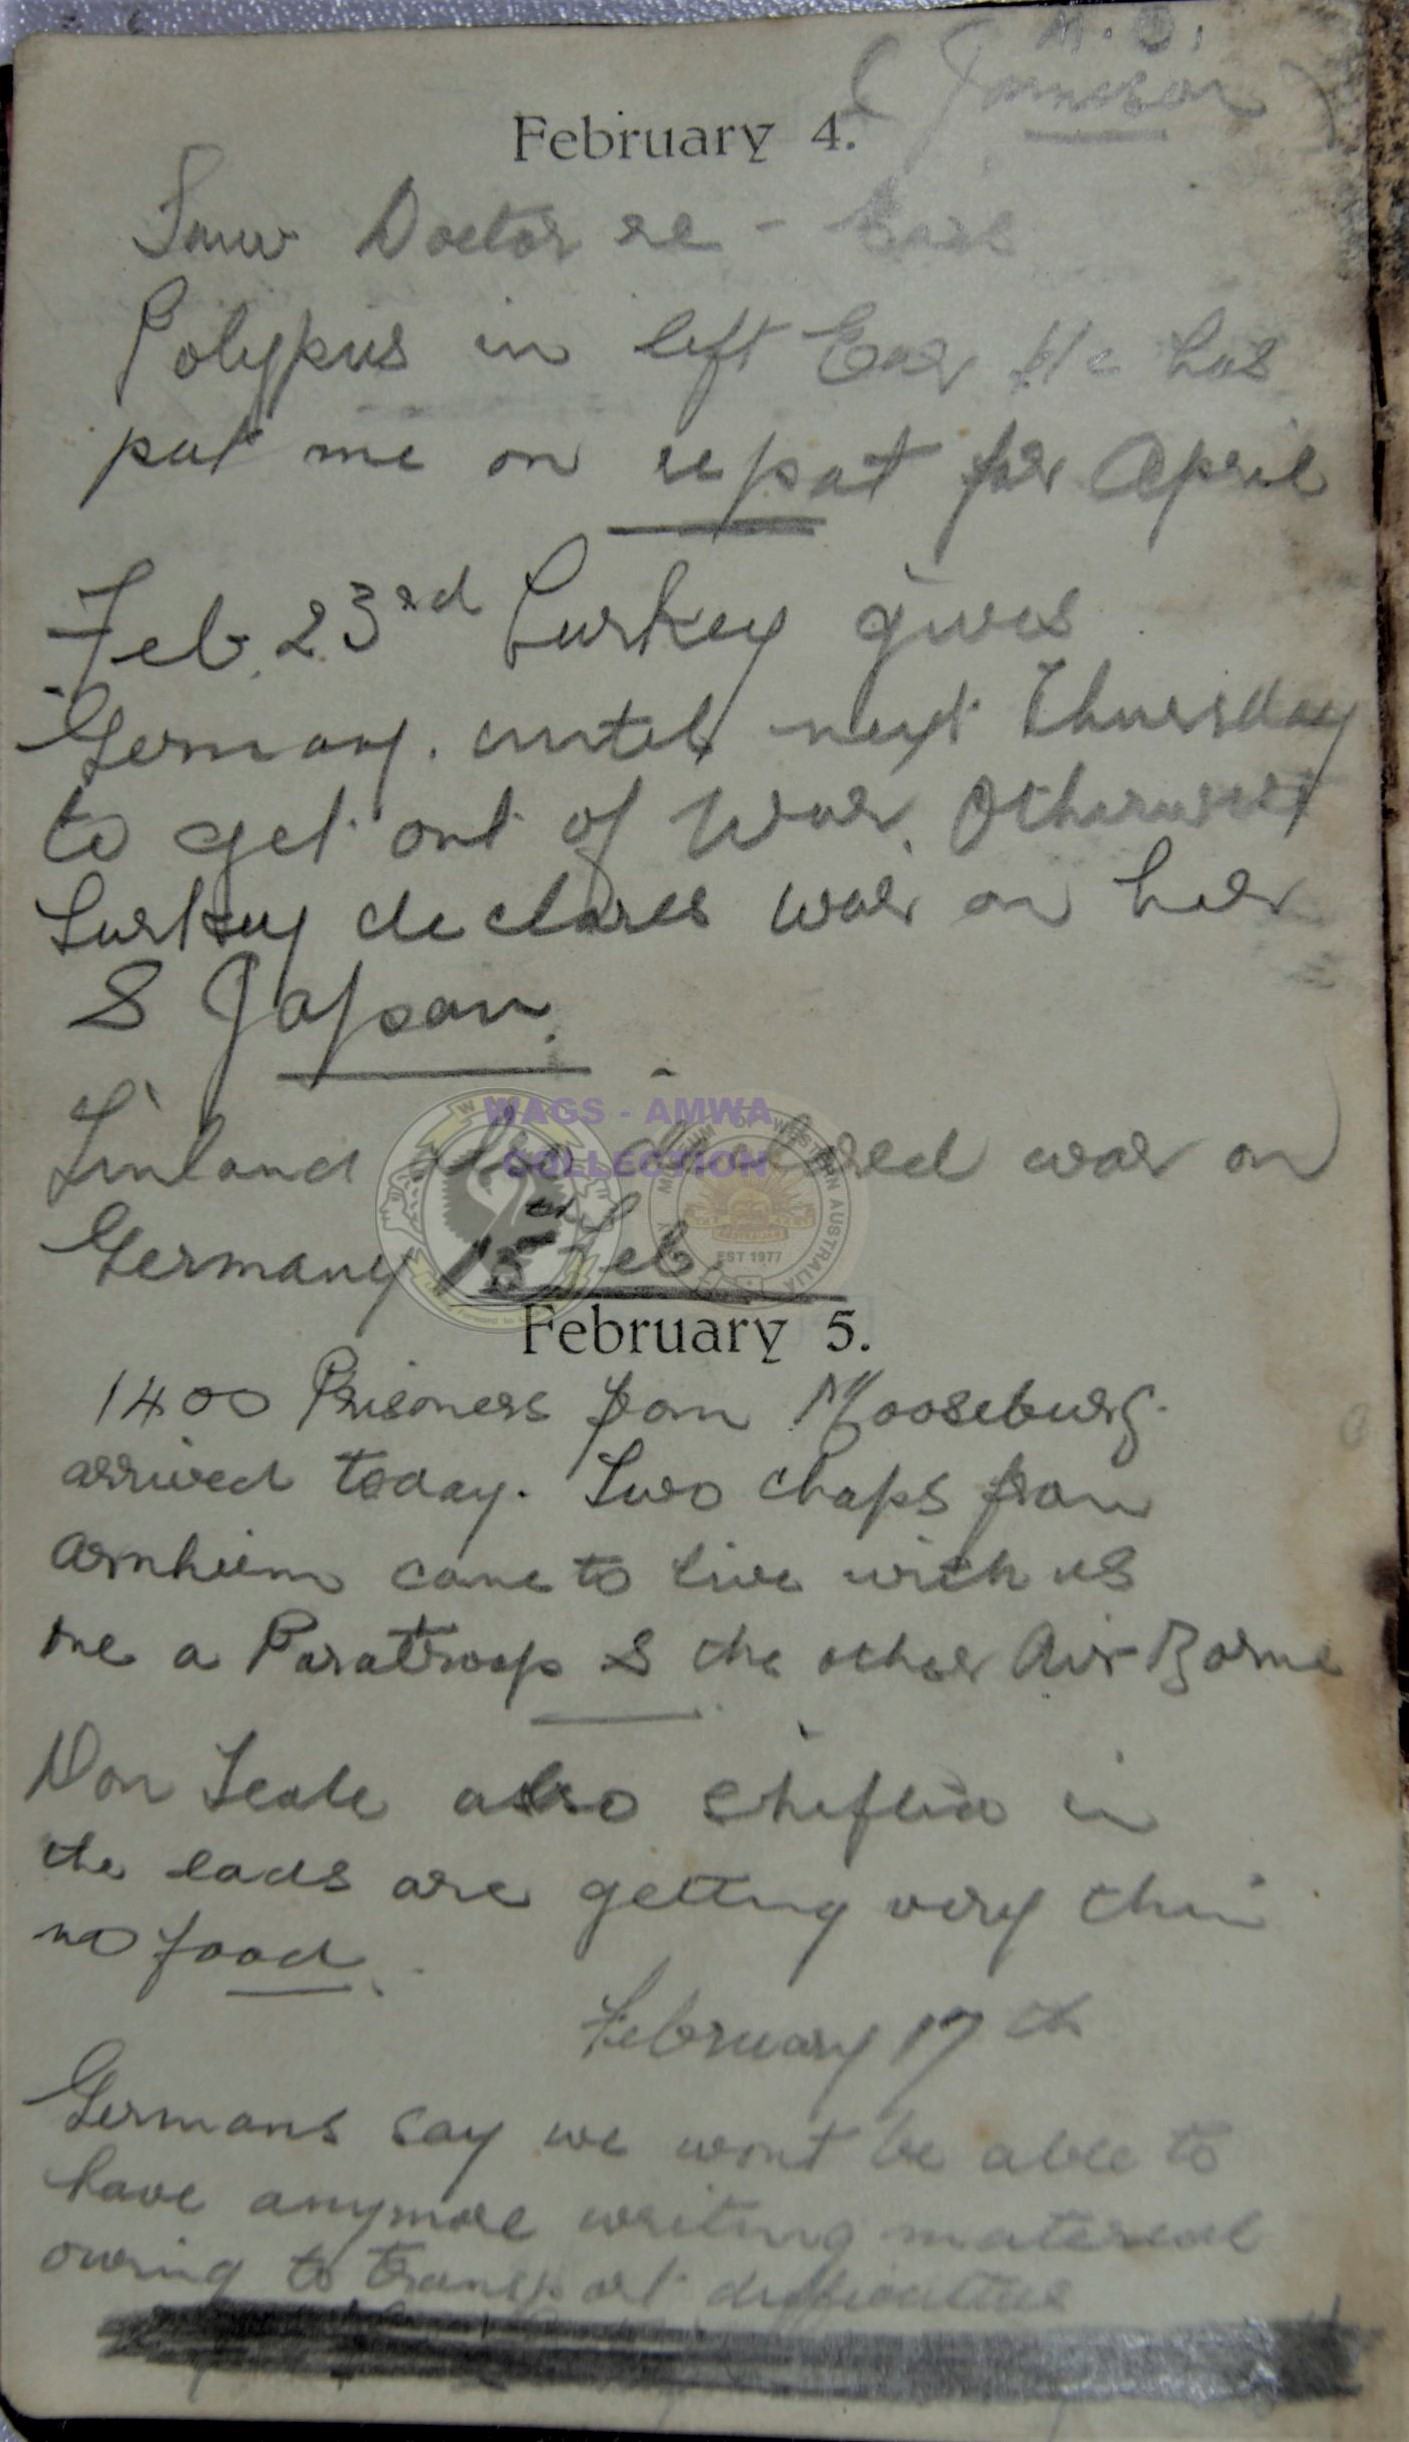 M.O.
(Jameson)
February 4.
Saw Doctor re - Ears
Polypus in left Ear He has
put me on repat for April
Feb. 23rd Turkey gives
Germany. until next Thursday
to get out of War. Otherwise
Turkey declares war on her
& Japan.
Finland also declared war on
Germany 15th Feb.
WAGS - AMWA
COLLECTION
MUSEUM OF WESTERN AUSTRALIA
EST 1977
February 5.
1400 Prisoners from Mooseburg.
arrived today. Two chaps from
Arnhiem came to live with us
one a Paratroop & the other Air-Borne
Don Teale also in
the lads are getting very thin
no food.
February 17th
Germans say we wont be able to
have anymore writing material
owing to transport difficulties